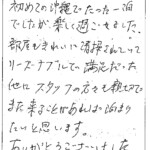 初めての沖縄でたった一泊
でしたが、楽しく過ごせました。
部屋もきれいに清掃されてって
リーズナブルでの満足だった
他にスタッフの方々も親切で
また来ることがあれば泊まり
たいと思います。
ありがとうございました